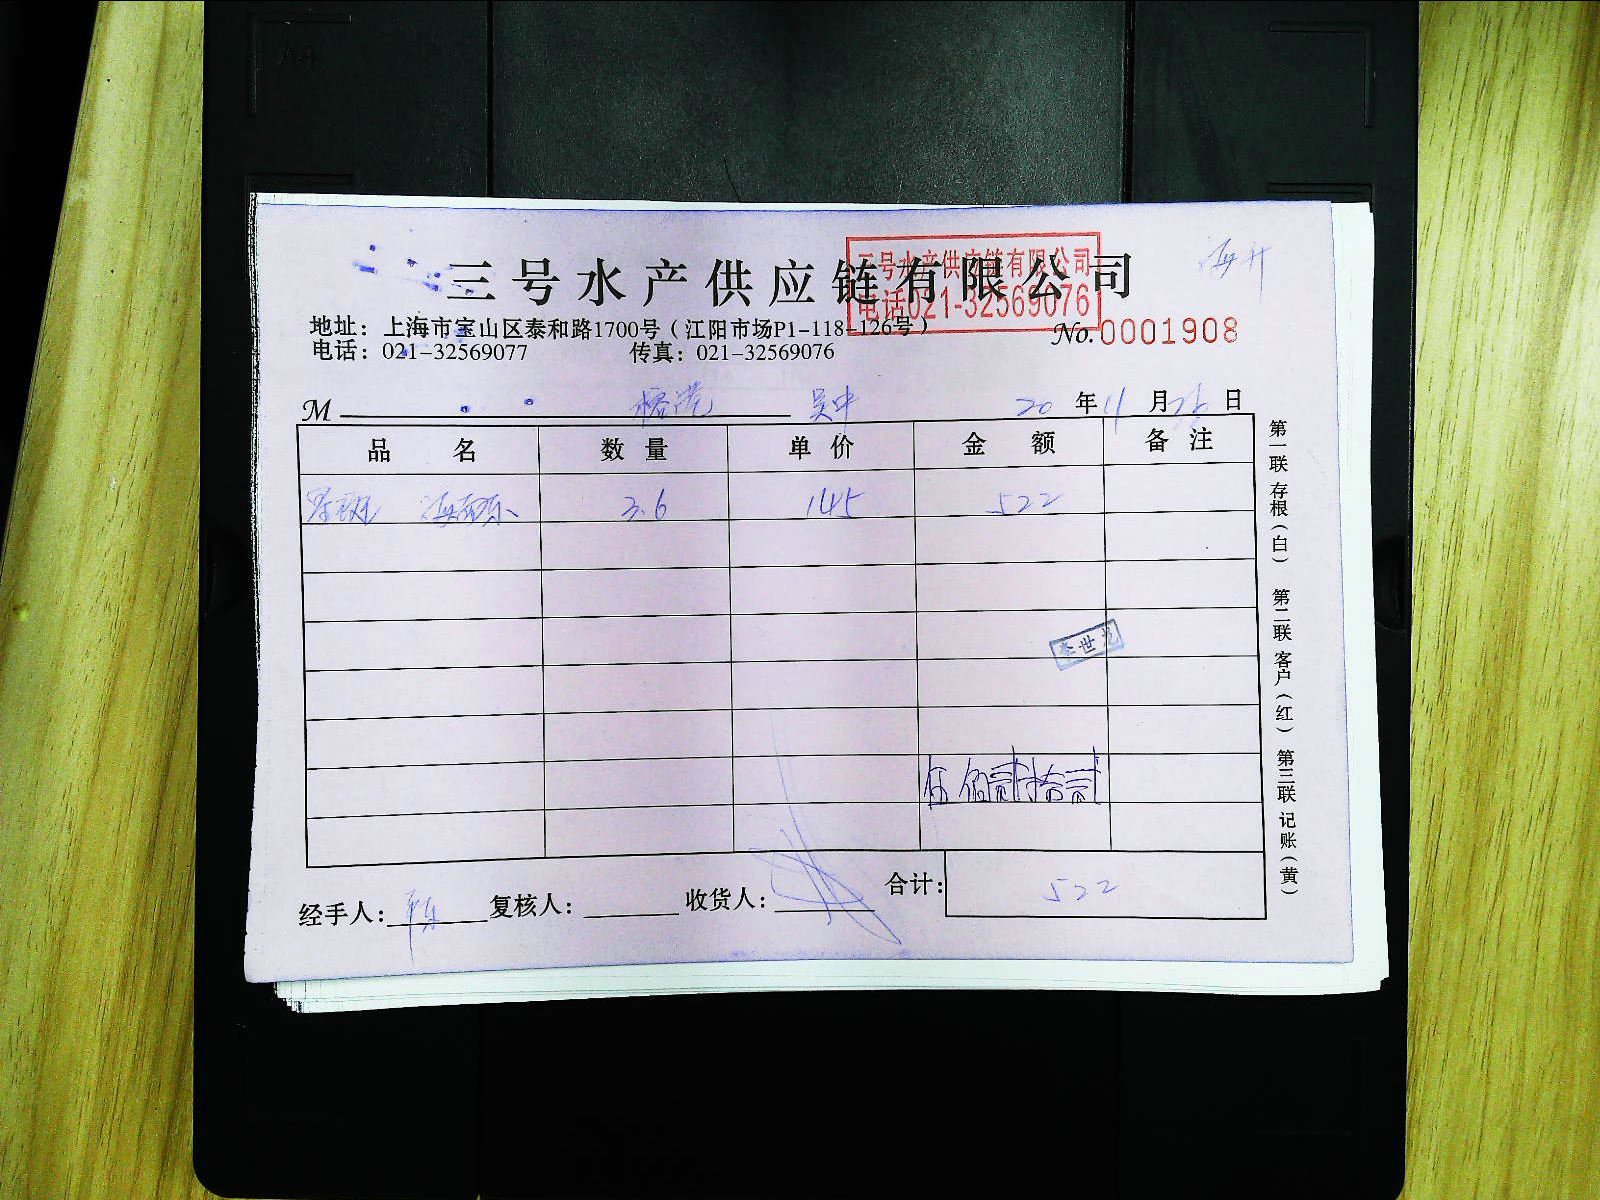 三号水产供应链有限公司
三号水产供应链有限公司
电话021-32569076
海升
地址：上海市宝山区泰和路1700号（江阳市场P1-118-126号）
电话：021-32569077 传真：021-32569076
No.0001908
M 榕港 吴中 20年11月26日
品名 数量 单价 金额 备注
3.6 145 522
伍佰贰拾贰
经手人： 复核人： 收货人： 合计：522
第一联 存根（白） 第二联 客户（红） 第三联 记账（黄）
A4